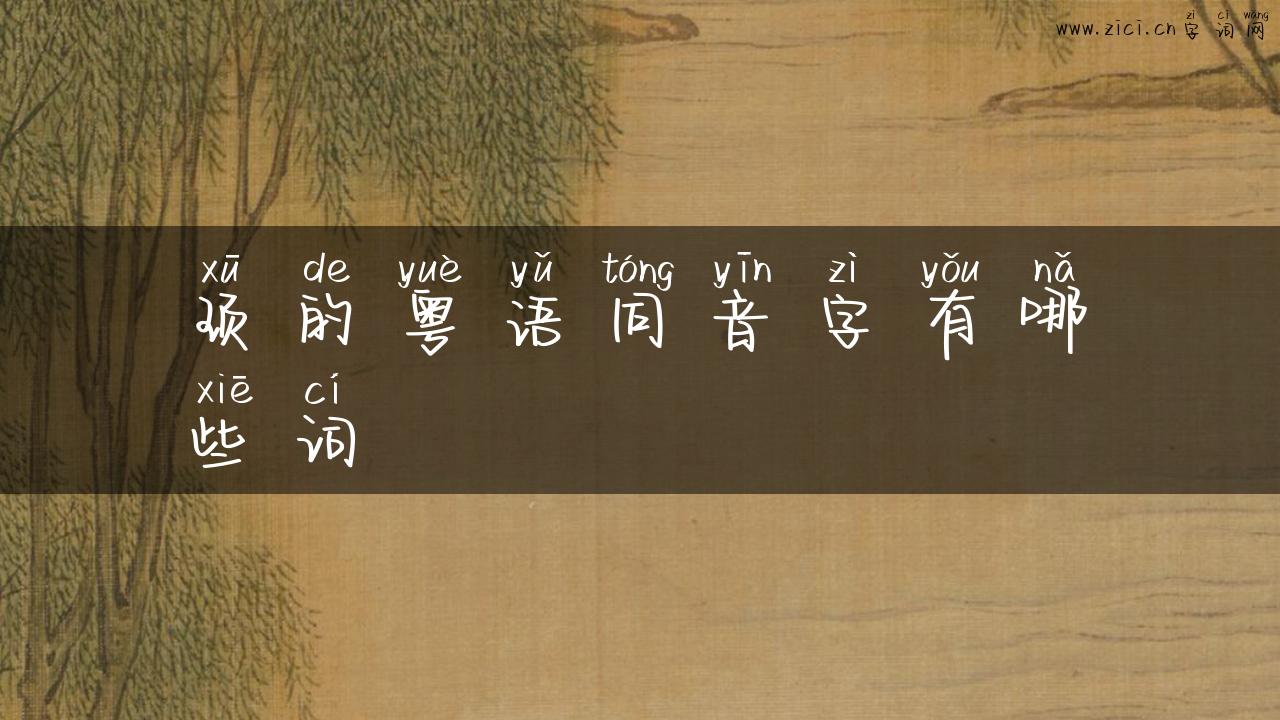 zì cí wǎng
www.zici.cn 字词网
xū de yuè yǔ tóng yīn zì yǒu nǎ
顼的粤语同音字有哪
xiē cí
些词